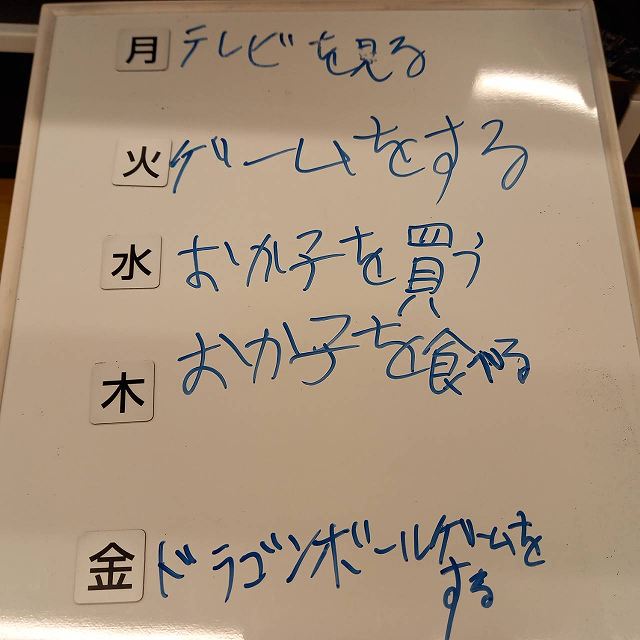 月 テレビを見る
火 ゲームをする
水 おか子を買う
木 おか子を食べる
金 ドラゴンボールゲームを
する